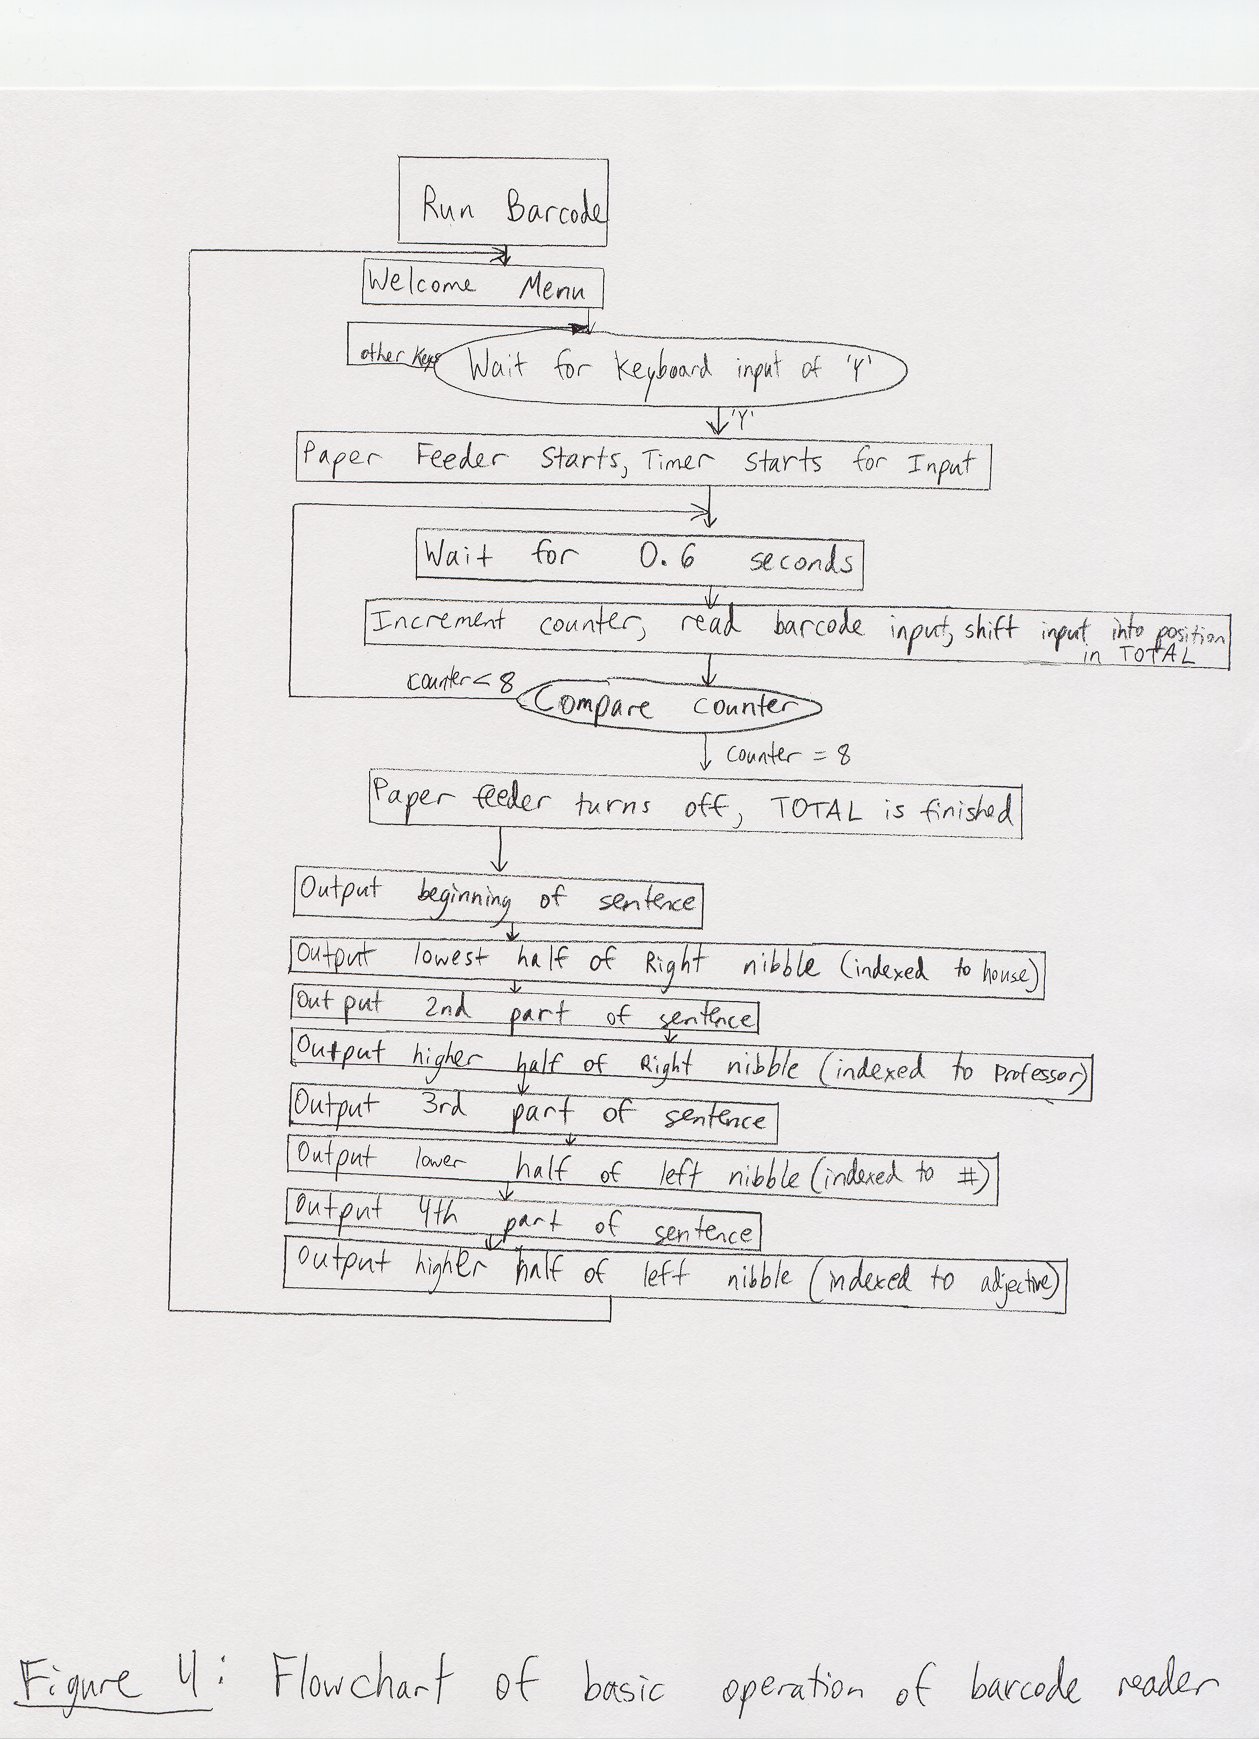 Run Barcode
Welcome Menu
other keys
Wait for keyboard input of 'Y'
'Y'
Paper Feeder Starts, Timer Starts for Input
Wait for 0.6 seconds
Increment counter, read barcode input, shift input into position
in TOTAL
counter < 8
Compare counter
counter = 8
Paper feeder turns off, TOTAL is finished
Output beginning of sentence
Output lowest half of Right nibble (indexed to house)
Output 2nd part of sentence
Output higher half of Right nibble (indexed to Professor)
Output 3rd part of sentence
Output lower half of left nibble (indexed to #)
Output 4th part of sentence
Output higher half of left nibble (indexed to adjective)
Figure 4: Flowchart of basic operation of barcode reader